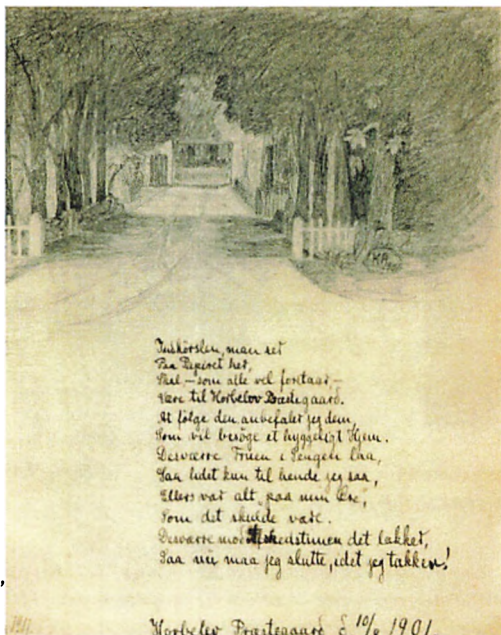 KR
Indkörslen, man ser
Paa Papiret her,
Skal – som alle vel forstaar, –
Være til Horbelov Præstegaard.
At følge den anbefaler jeg dem,
Som vil besöge et hyggeligt Hjem.
Desværre Fruen i Sengen laa,
Saa lidet kun til hende jeg saa,
Ellers var alt, paa min Ære,
Som det skulde være.
Desværre mod Afskedstimen det lakker,
Saa nu maa jeg slutte, idet jeg takker!
Horbelev Præstegaard d. 10/ 1901.